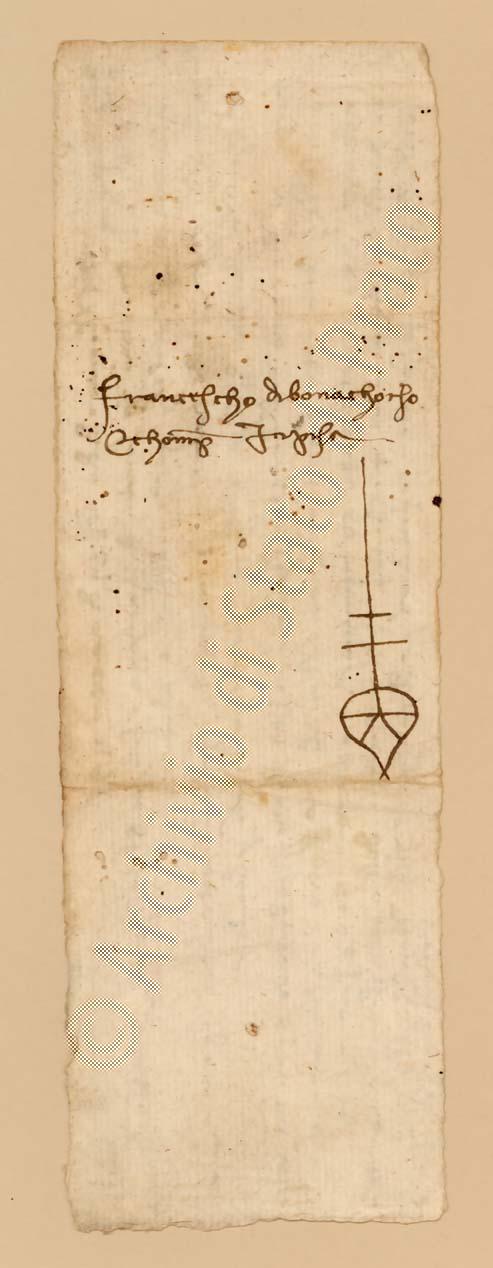 Francescho di bonachorso
E chomp In pisa
© Archivio di Stato di Prato